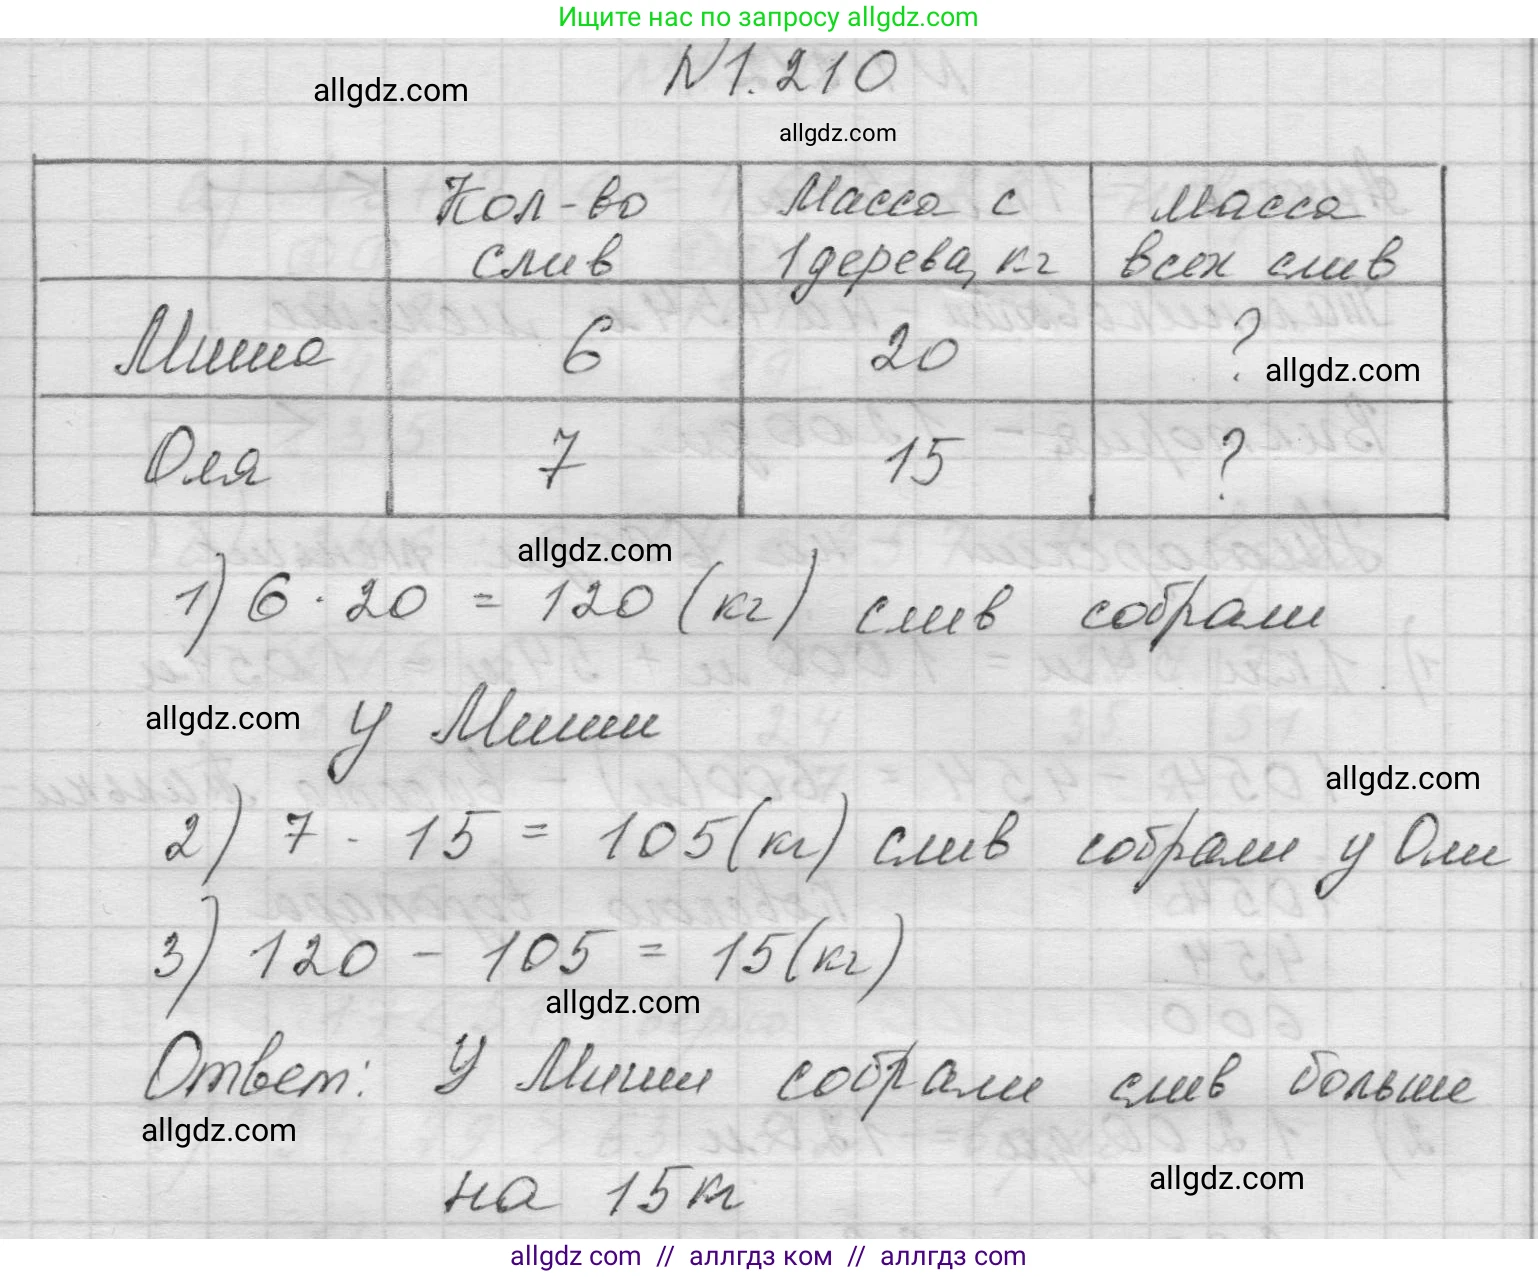 Ищите нас по запросу allgdz.com
N1.210
allgdz.com
allgdz.com
Кол-во слив
Масса с 1 дерева, кг
Масса всех слив
Миша 6 20 ?
allgdz.com
Оля 7 15 ?
allgdz.com
1) 6 · 20 = 120 (кг) слив собрали
allgdz.com
у Миши
allgdz.com
2) 7 · 15 = 105 (кг) слив собрали у Оли
3) 120 - 105 = 15 (кг)
allgdz.com
Ответ: У Миши собрали слив больше
allgdz.com
на 15 кг
allgdz.com
allgdz.com // аллгдз ком // аллгдз com